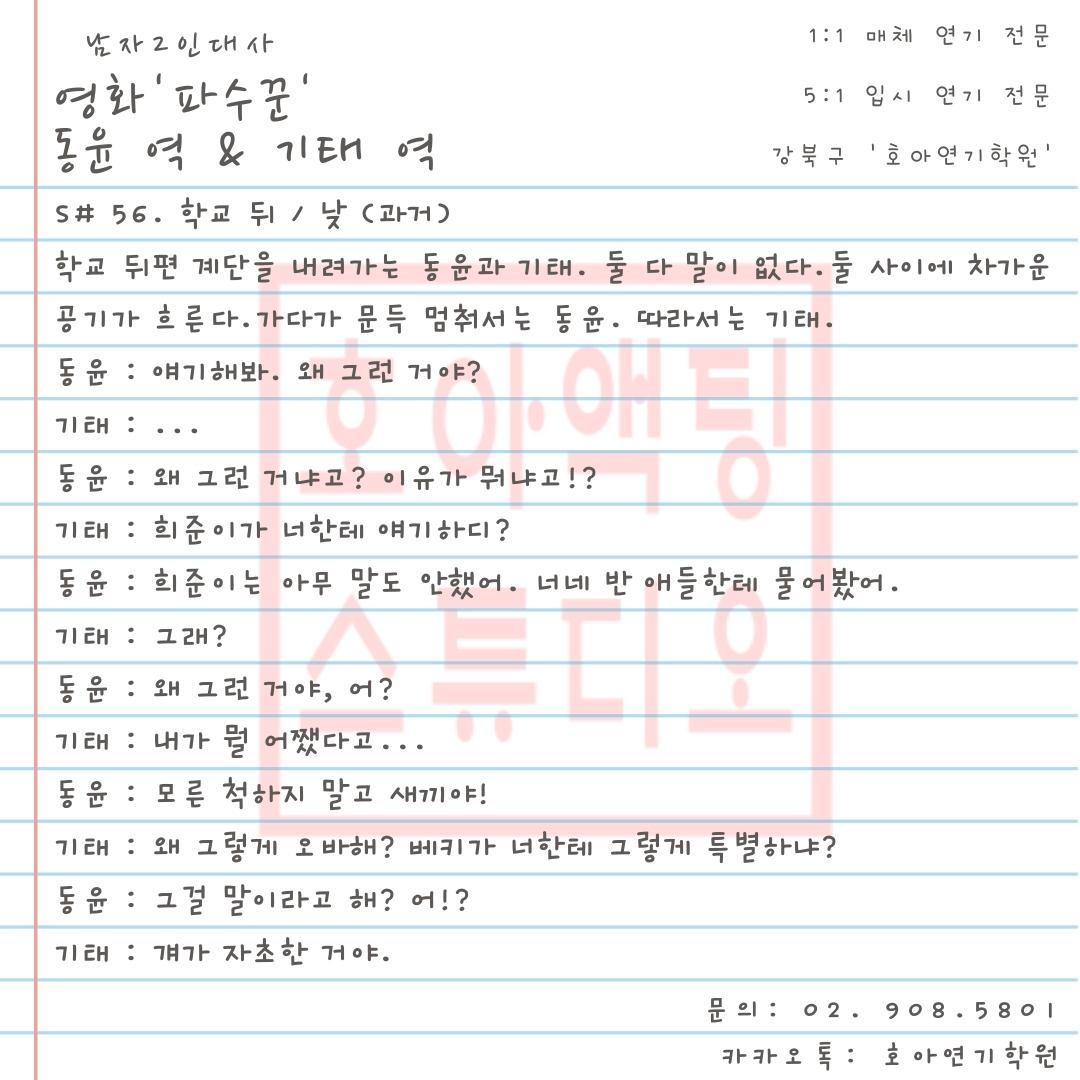 남자2인대사
영화'파수꾼'
동윤 역 & 기태 역
1:1 매체 연기 전문
5:1 입시 연기 전문
강북구 '호아연기학원'
S# 56. 학교 뒤 / 낮 (과거)
학교 뒤편 계단을 내려가는 동윤과 기태. 둘 다 말이 없다.둘 사이에 차가운
공기가 흐른다.가다가 문득 멈춰서는 동윤. 따라서는 기태.
동윤 : 얘기해봐. 왜 그런 거야?
기태 : ...
동윤 : 왜 그런 거냐고? 이유가 뭐냐고!?
기태 : 희준이가 너한테 얘기하디?
동윤 : 희준이는 아무 말도 안했어. 너네 반 애들한테 물어봤어.
기태 : 그래?
동윤 : 왜 그런 거야, 어?
기태 : 내가 뭘 어쨌다고...
동윤 : 모른 척하지 말고 새끼야!
기태 : 왜 그렇게 오바해? 베키가 너한테 그렇게 특별하냐?
동윤 : 그걸 말이라고 해? 어!?
기태 : 걔가 자초한 거야.
문의: 02. 908.5801
카카오톡: 호아연기학원
호아액팅
스튜디오